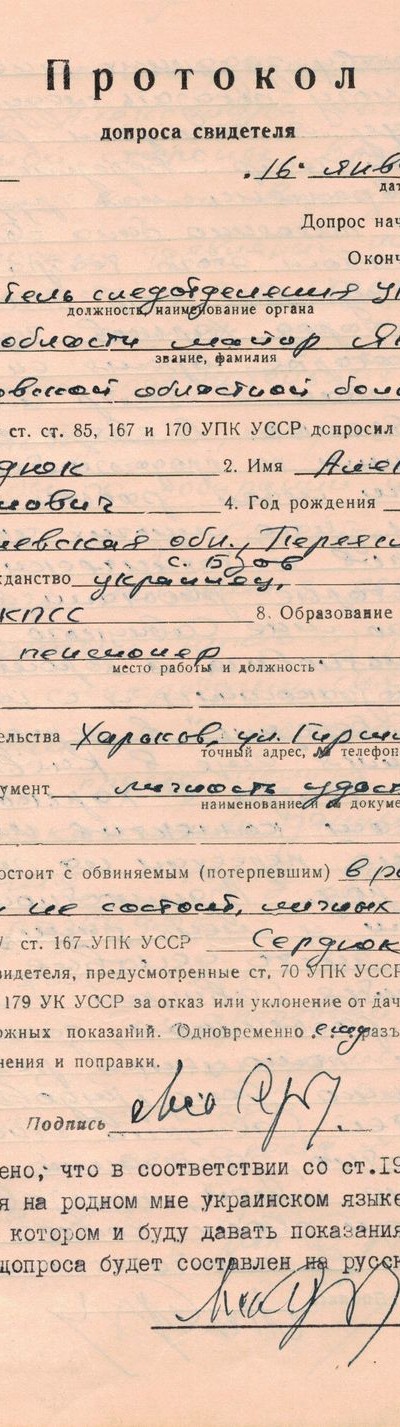 Протокол
допроса свидетеля
„16“ янва
дат
Допрос нач
Оконч
тель следотделения У
должность, наименование органа
области майор Я
звание, фамилия
овской областной бол
ст. ст. 85, 167 и 170 УПК УССР допросил
дюк 2. Имя Алек
мович 4. Год рождения
иевская обл., Переяс
с. Бзов
жданство украинец,
КПСС 8. Образование
пенсионер
место работы и должность
ельства Харьков, ул. Гирш
точный адрес, № телефон
умент личность удост
наименование и № докуме
остоит с обвиняемым (потерпевшим) в ро
и не состоит, личных
ст. 167 УПК УССР Сердюк
видетеля, предусмотренные ст. 70 УПК УССР
179 УК УССР за отказ или уклонение от дач
ожных показаний. Одновременно ему раз
нения и поправки.
Подпись
ено, что в соответствии со ст.19
я на родном мне украинском языке
котором и буду давать показания
допроса будет составлен на русск